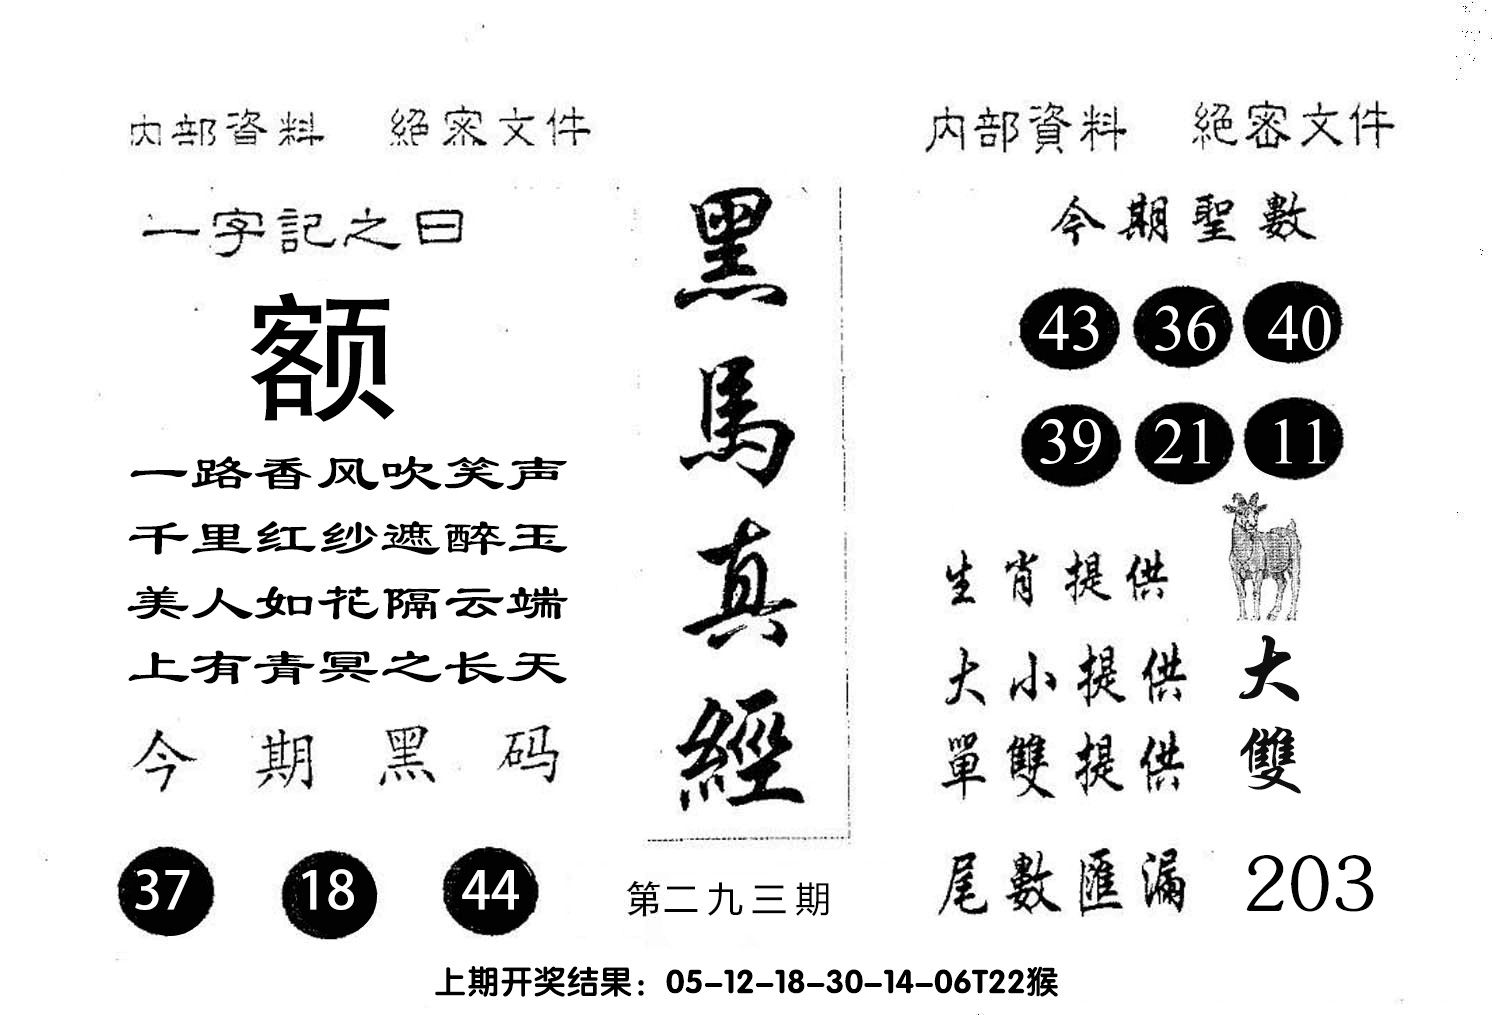 内部資料 絕密文件
一字記之曰
额
一路香风吹笑声
千里红纱遮醉玉
美人如花隔云端
上有青冥之长天
今期黑码
37 18 44
黑馬真經
第二九三期
内部資料 絕密文件
今期聖數
43 36 40
39 21 11
生肖提供
大小提供 大
單雙提供 雙
尾數匯漏 203
上期开奖结果：05-12-18-30-14-06T22猴